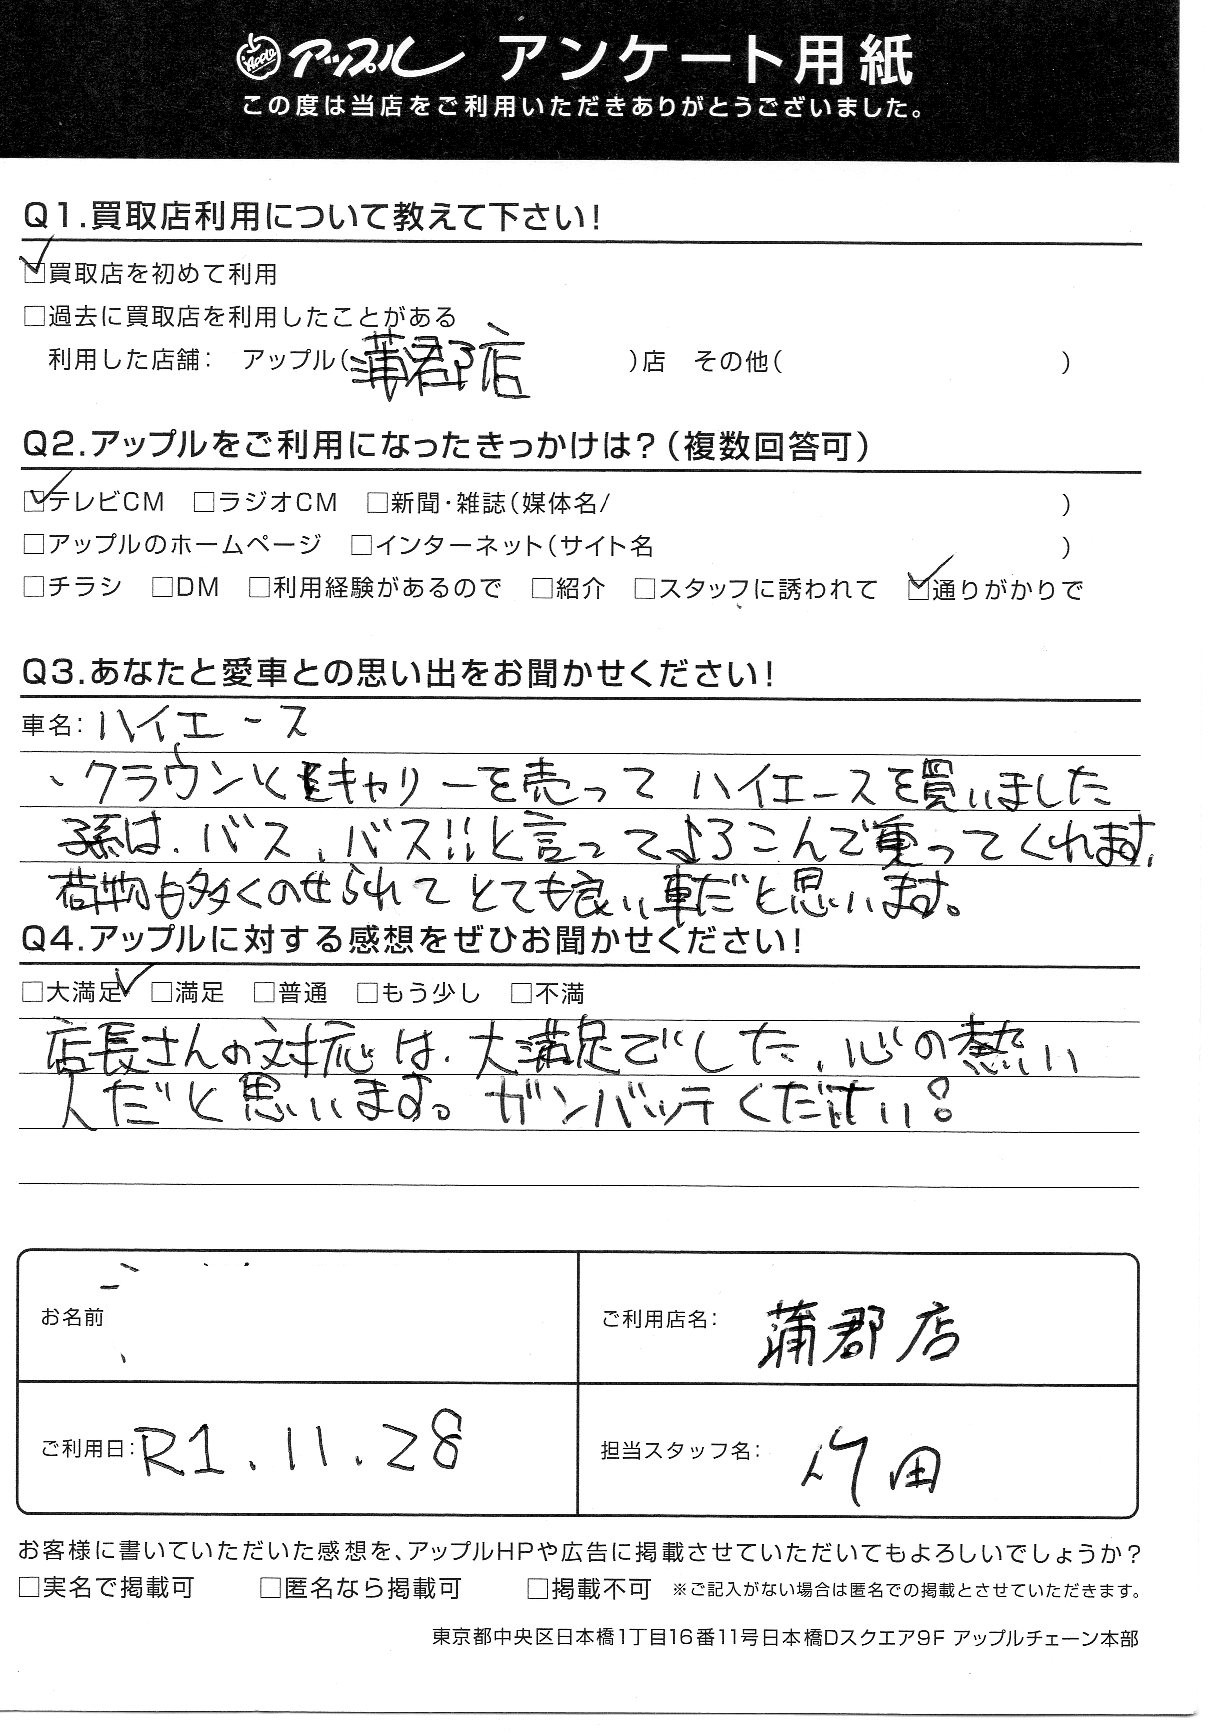 Apple アップル アンケート用紙
この度は当店をご利用いただきありがとうございました。
Q1.買取店利用について教えて下さい！
☑買取店を初めて利用
□過去に買取店を利用したことがある
利用した店舗： アップル（蒲郡店）店 その他（ ）
Q2.アップルをご利用になったきっかけは？（複数回答可）
☑テレビCM □ラジオCM □新聞・雑誌（媒体名/ ）
□アップルのホームページ □インターネット（サイト名 ）
□チラシ □DM □利用経験があるので □紹介 □スタッフに誘われて ☑通りがかりで
Q3.あなたと愛車との思い出をお聞かせください！
車名：ハイエース
、クラウンとキャリーを売って ハイエースを買いました
孫は、バス、バス!!と言ってよろこんで乗ってくれます、
荷物も多くのせられて とても良い車だと思います。
Q4.アップルに対する感想をぜひお聞かせください！
□大満足 ☑満足 □普通 □もう少し □不満
店長さんの対応は、大満足でした、心の熱い
人だと思います。ガンバッテください！
お名前
ご利用店名： 蒲郡店
ご利用日：R1.11.28
担当スタッフ名： 竹田
お客様に書いていただいた感想を、アップルHPや広告に掲載させていただいてもよろしいでしょうか？
□実名で掲載可 □匿名なら掲載可 □掲載不可 ※ご記入がない場合は匿名での掲載とさせていただきます。
東京都中央区日本橋1丁目16番11号日本橋Dスクエア9F アップルチェーン本部